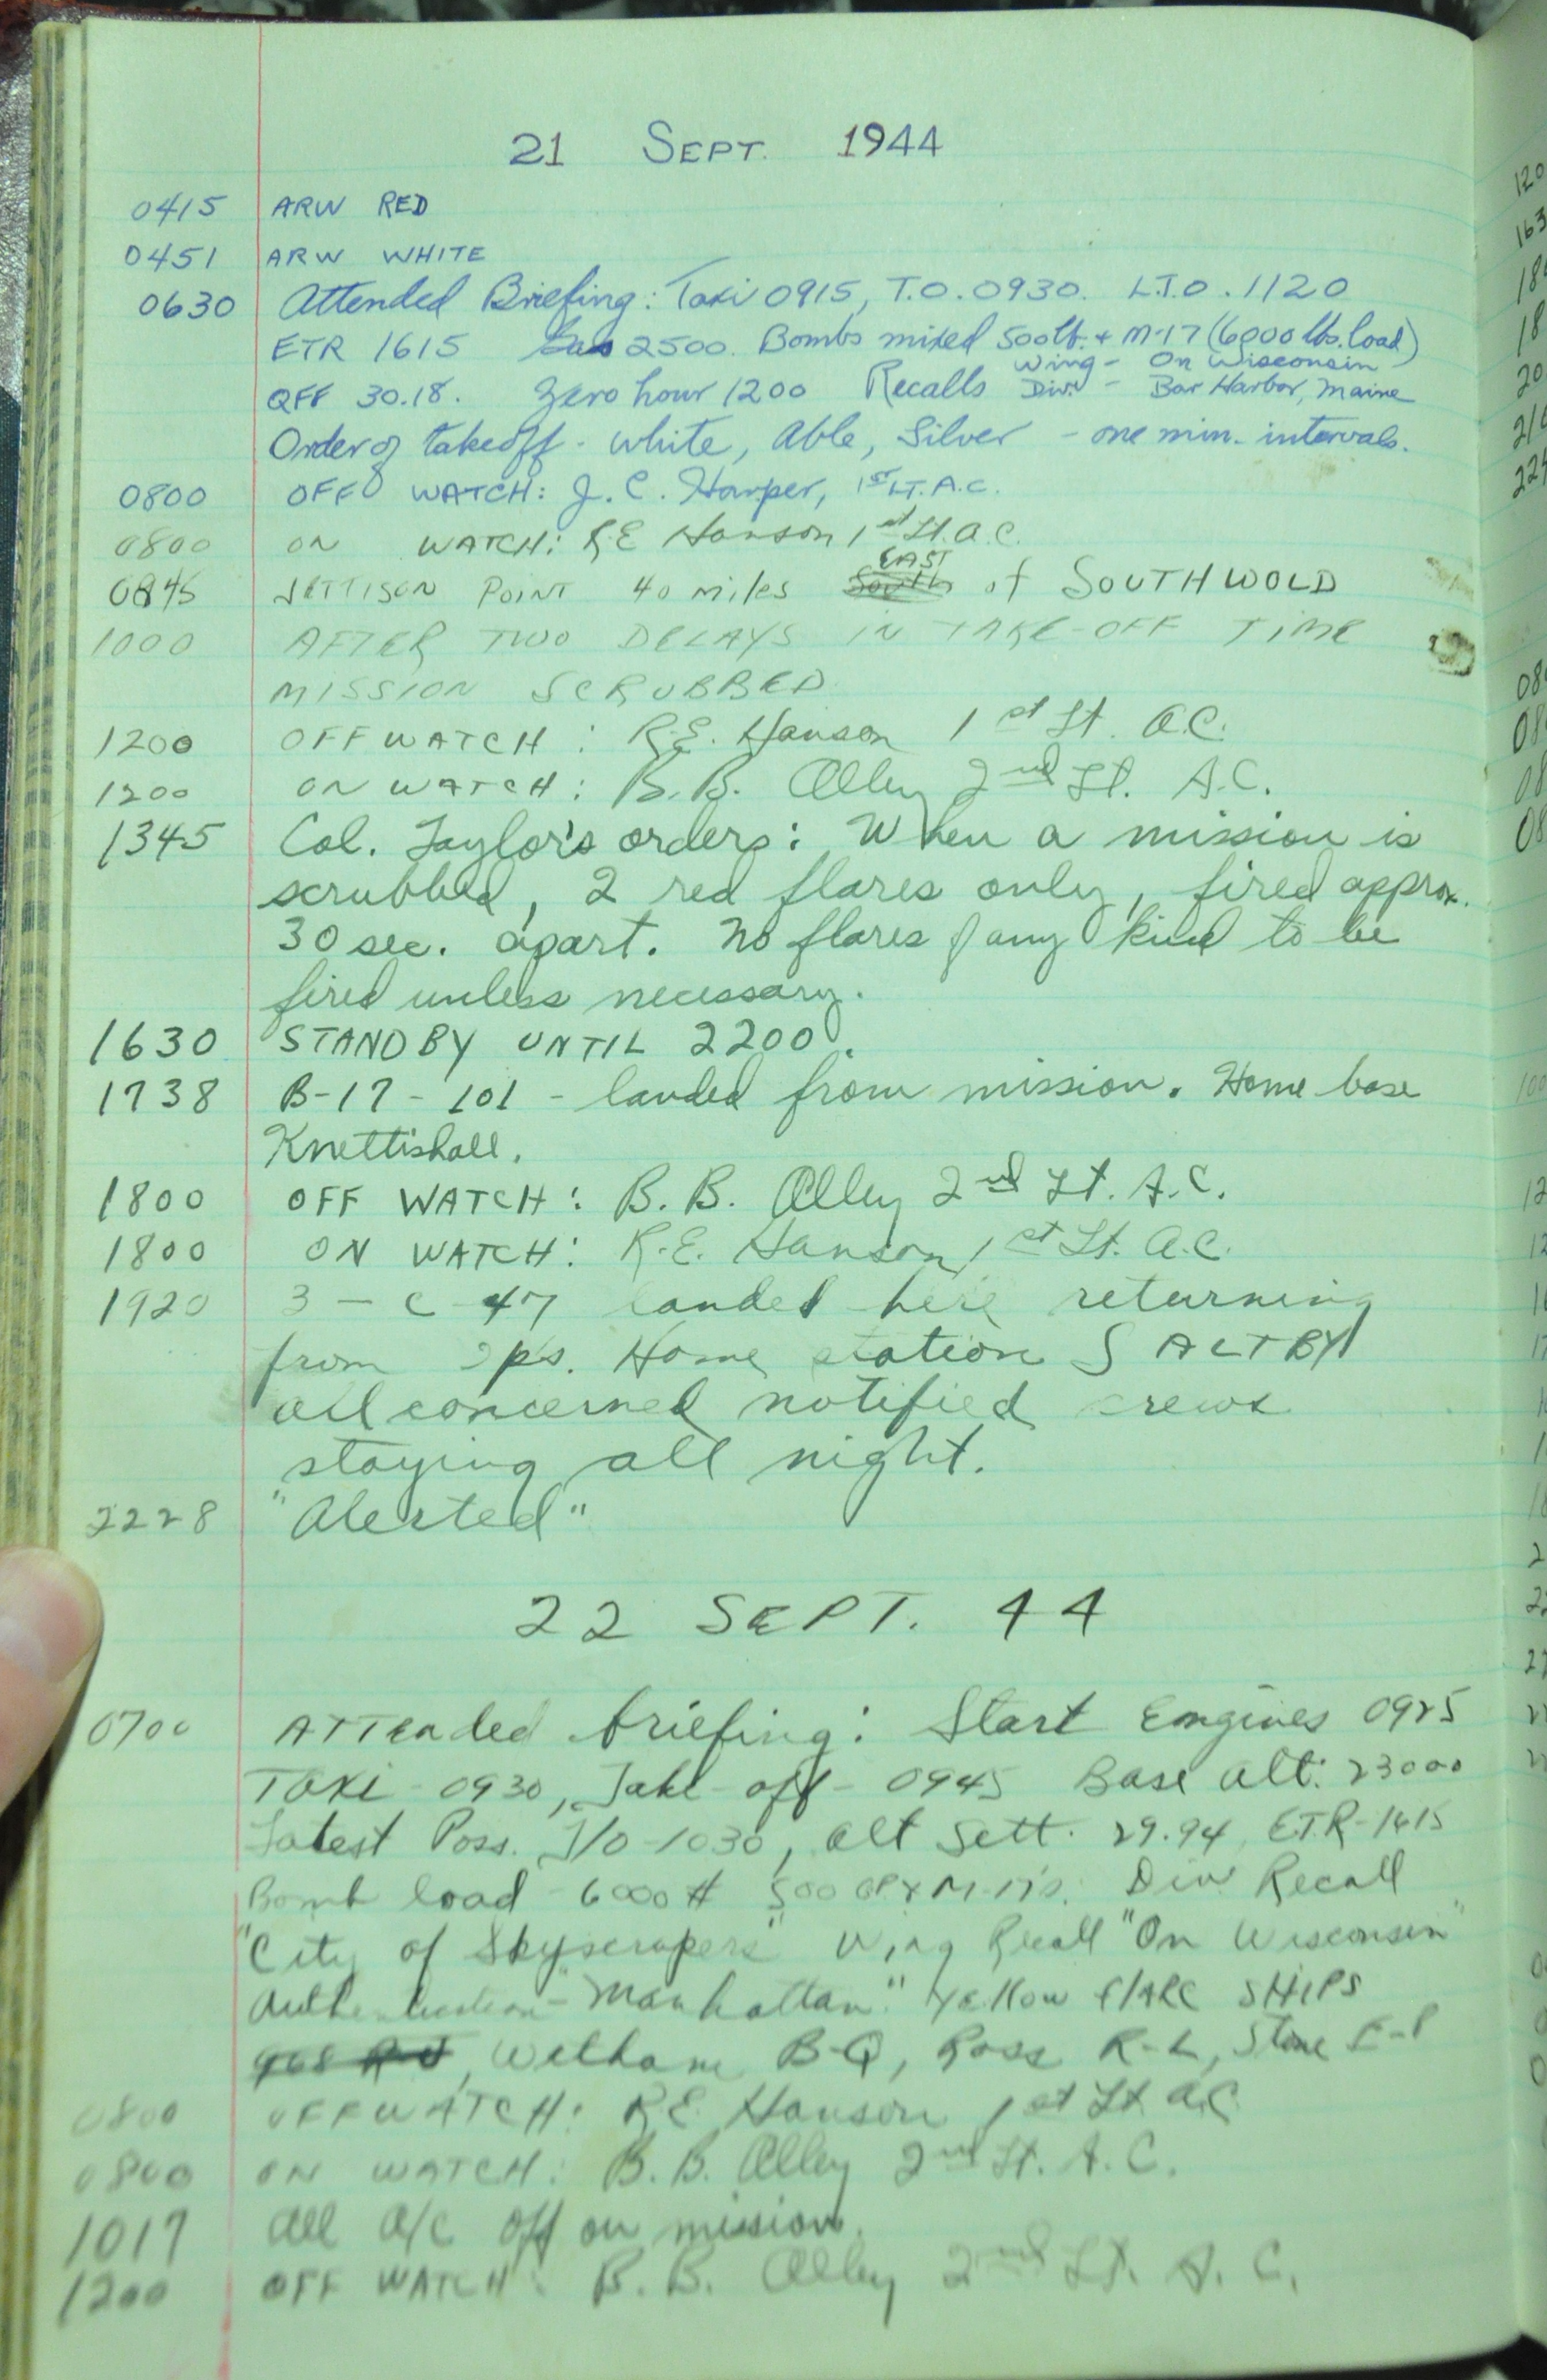 21 SEPT. 1944
0415 ARW RED
0451 ARW WHITE
0630 Attended Briefing: Taxi 0915, T.O. 0930. L.T.O. 1120
ETR 1615 Gas 2500. Bombs mixed 500 lb. + M-17 (6000 lbs. load)
Wing - On Wisconsin
QFF 30.18. Zero hour 1200 Recalls Div. - Bar Harbor, Maine
Order of takeoff - White, Able, Silver - one min. intervals.
0800 OFF WATCH: J. C. Harper, 1ST LT. A.C.
0800 ON WATCH: R.E. Hanson 1st Lt. A.C.
EAST
0845 JETTISON POINT 40 miles South of SOUTHWOLD
1000 AFTER TWO DELAYS IN TAKE-OFF TIME
MISSION SCRUBBED
1200 OFF WATCH: R.E. Hanson 1st Lt. A.C.
1200 ON WATCH: B.B. Alley 2nd Lt. A.C.
1345 Col. Taylor's orders: When a mission is
scrubbed, 2 red flares only, fired approx.
30 sec. apart. No flares of any kind to be
fired unless necessary.
1630 STANDBY UNTIL 2200.
1738 B-17 - 101 - landed from mission. Home base
Knettishall.
1800 OFF WATCH: B. B. Alley 2nd Lt. A.C.
1800 ON WATCH: R.E. Hanson, 1st Lt. A.C.
1920 3 - C-47 landed here returning
from ops. Home station SALTBY
all concerned notified crews
staying all night.
2228 "Alerted"
22 SEPT. 44
0700 ATTended briefing: Start Engines 0925
TAXI - 0930, Take-off - 0945 Base alt: 23000
Latest Poss. T/O - 1030, Alt Sett. 29.94, E.T.R - 1615
Bomb load - 6000# 500 GP & M-17's. Div Recall
"City of Skyscrapers" Wing Recall "On Wisconsin"
Authentication - "Manhattan." Yellow flARE SHIPS
Welham B-Q, Ross R-L, Stone E-P
0800 OFF WATCH: R.E. Hanson 1st Lt. A.C.
0800 ON WATCH: B. B. Alley 2nd Lt. A. C.
1017 All A/C off on mission.
1200 OFF WATCH: B. B. Alley 2nd Lt. A. C.